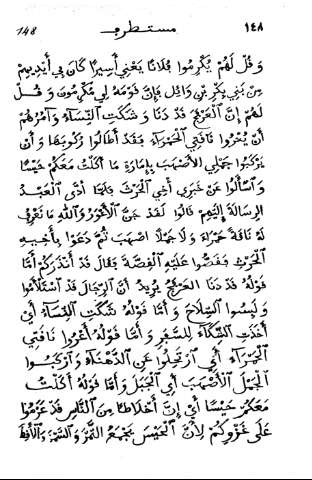 148 مستطرف ١٤٨
وَقُلْ لَهُمْ يُكْرِمُوا فُلَانًا يَعْنِي أَسِيرًا كَانَ فِي أَيْدِيهِمْ
مِنْ بَنِي بَكْرِ بْنِ وَائِلٍ فَإِنَّ قَوْمَهُ لِي مُكْرِمُونَ وَقُلْ
لَهُمْ إِنَّ الْعَرْفَجَ قَدْ دَنَا وَشَكَتِ النِّسَاءُ وَآمُرُهُمْ
أَنْ يُعْرُوا نَاقَتِي الْحَمْرَاءَ فَقَدْ أَطَالُوا رُكُوبَهَا وَأَنْ
يَرْكَبُوا جَمَلِي الْأَصْهَبَ بِأَمَارَةِ مَا أَكَلْتُ مَعَكُمْ حَيْسًا
وَاسْأَلُوا عَنْ خَبَرِي أَخِي الْحَرْثَ فَلَمَّا أَدَّى الْعَبْدُ
الرِسَالَةَ إِلَيْهِمْ قَالُوا لَقَدْ جُنَّ الْأَعْوَرُ وَاللّٰهِ مَا نَعْرِفُ
لَهُ نَاقَةً حَمْرَاءَ وَلَا جَمَلًا أَصْهَبَ ثُمَّ دَعَوْا بِأَخِيهِ
الْحَرْثِ فَقَصُّوا عَلَيْهِ الْقِصَّةَ فَقَالَ قَدْ أَنْذَرَكُمْ أَمَّا
قَوْلُهُ قَدْ دَنَا الْعَرْفَجُ يُرِيدُ أَنَّ الرِّجَالَ قَدِ اسْتَلْأَمُوا
وَلَبِسُوا السِّلَاحَ وَأَمَّا قَوْلُهُ شَكَتِ النِّسَاءُ أَيْ
أَخَذَتِ الشِّكَاءَ لِلسَّفَرِ وَأَمَّا قَوْلُهُ أَعْرُوا نَاقَتِي
الْحَمْرَاءَ أَيِ ارْتَحِلُوا عَنِ الدَّهْنَاءِ وَارْكَبُوا
الْجَمَلَ الْأَصْهَبَ أَيِ الْجَبَلَ وَأَمَّا قَوْلُهُ أَكَلْتُ
مَعَكُمْ حَيْسًا أَيْ إِنَّ أَخْلَاطًا مِنَ النَّاسِ قَدْ عَزَمُوا
عَلَى غَزْوِكُمْ لِأَنَّ الْحَيْسَ يَجْمَعُ التَّمْرَ وَالسَّمْنَ وَالْأَقِطَ